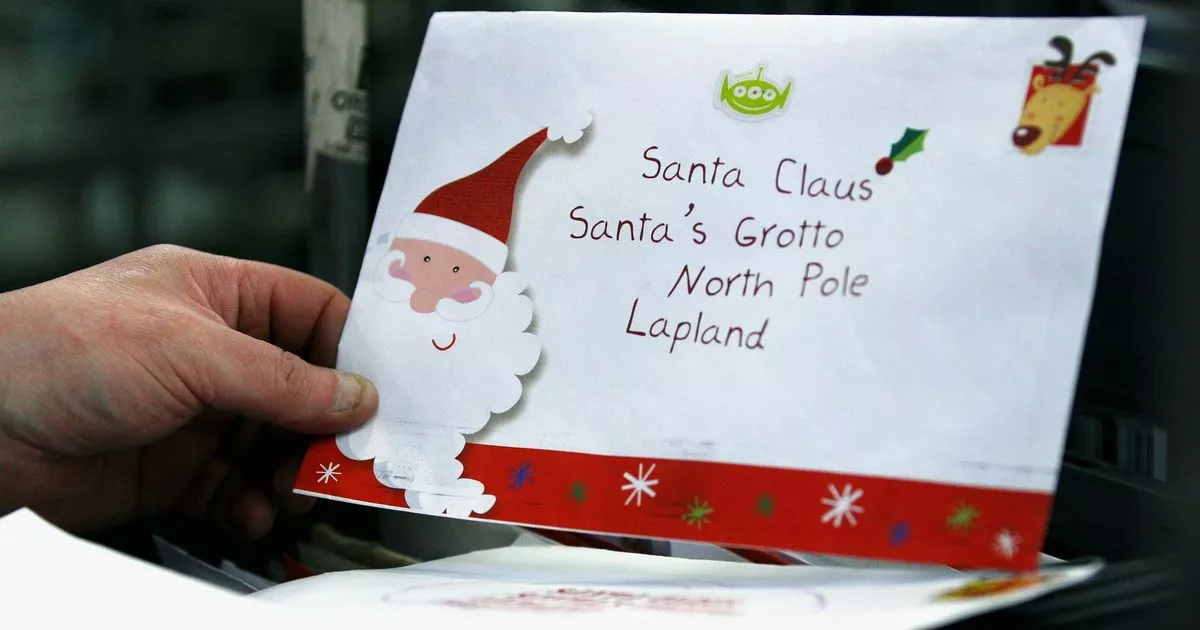 Santa Claus
Santa's Grotto
North Pole
Lapland